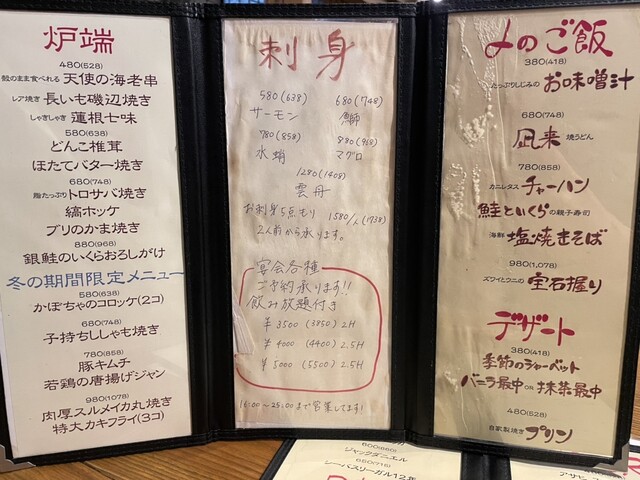 炉端
480(528)
殻のまま食べれる 天使の海老串
レア焼き 長いも磯辺焼き
しゃきしゃき 蓮根七味
580(638)
どんこ椎茸
ほたてバター焼き
680(748)
脂たっぷりトロサバ焼き
縞ホッケ
ブリのかま焼き
880(968)
銀鮭のいくらおろしがけ
冬の期間限定メニュー
580(638)
かぼちゃのコロッケ(2コ)
680(748)
子持ちししゃも焼き
780(858)
豚キムチ
若鶏の唐揚げジャン
980(1078)
肉厚スルメイカ丸焼き
特大カキフライ(3コ)
刺身
580(638) 680(748)
サーモン 鰤
780(858) 880(968)
水蛸 マグロ
1280(1408)
雲丹
お刺身5点もり 1580/人(1738)
2人前から承ります。
宴会各種
ご予約承ります!!
飲み放題付き
¥3500 (3850) 2H
¥4000 (4400) 2.5H
¥5000 (5500) 2.5H
16:00〜25:00まで営業してます!
〆のご飯
380(418)
たっぷりしじみの お味噌汁
680(748)
凪来 焼うどん
780(858)
カニレタス チャーハン
鮭といくらの親子寿司
海鮮 塩焼きそば
980(1,078)
ズワイとウニの 宝石握り
デザート
380(418)
季節のシャーベット
バニラ最中 OR 抹茶最中
480(528)
自家製焼き プリン
ジャックダニエル
650(715)
シーバスリーガル12年